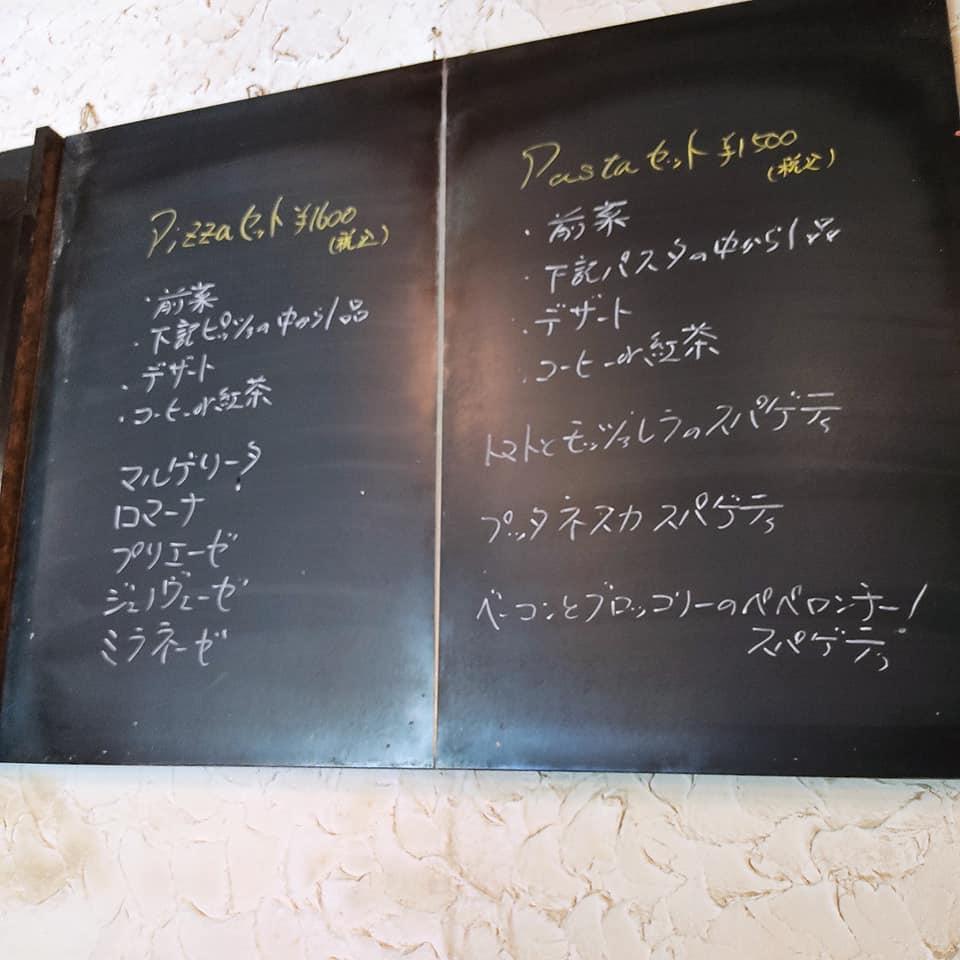 Pizzaセット ¥1600
(税込)
・前菜
・下記ピッツァの中から1品
・デザート
・コーヒーor紅茶
マルゲリータ
ロマーナ
プリエーゼ
ジェノヴェーゼ
ミラネーゼ
Pastaセット ¥1500
(税込)
・前菜
・下記パスタの中から1品
・デザート
・コーヒーor紅茶
トマトとモッツァレラのスパゲティ
プッタネスカ スパゲティ
ベーコンとブロッコリーのペペロンチーノ
スパゲティ